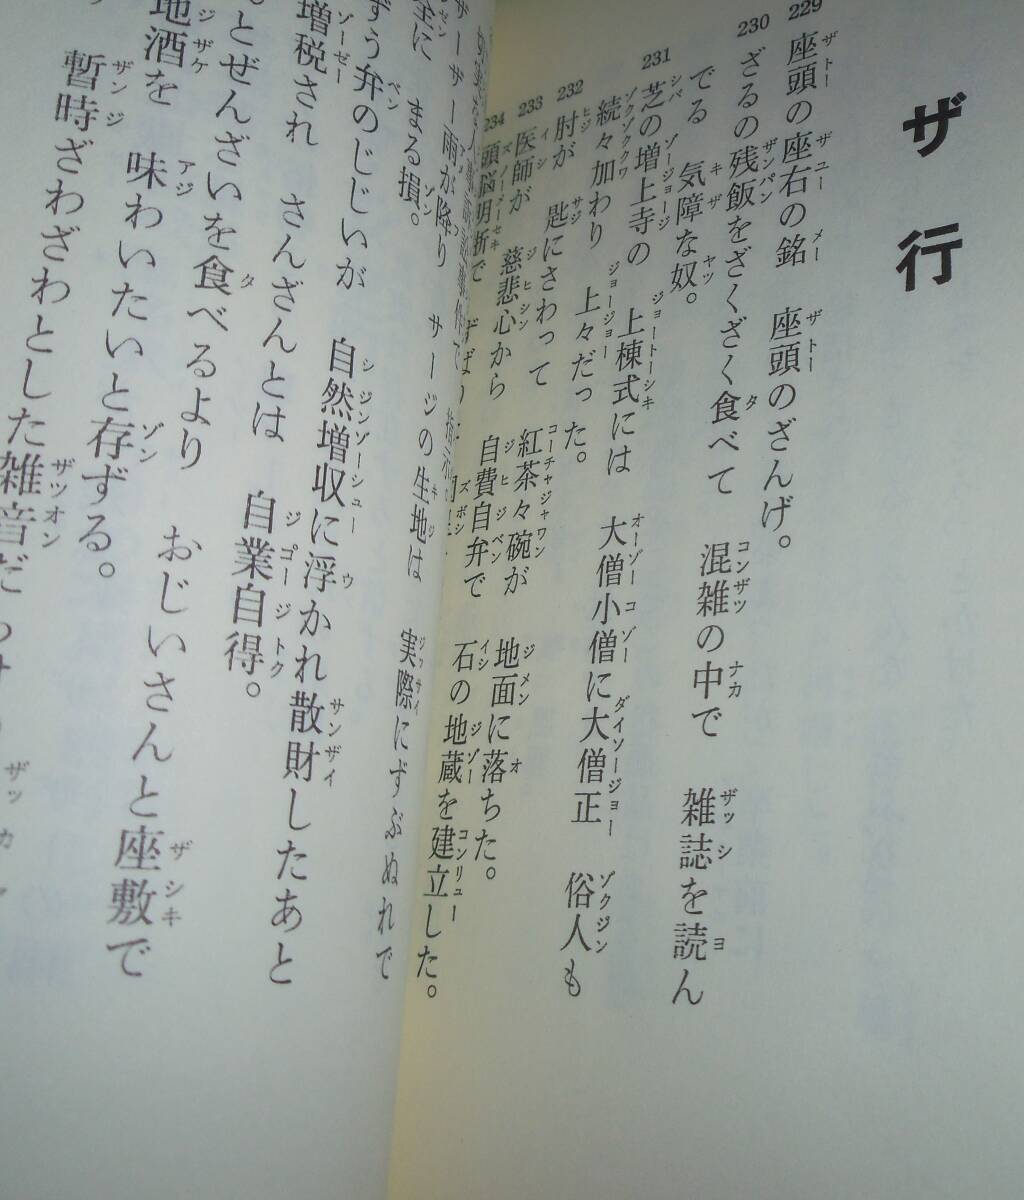 ザ行
229 座頭の座右の銘 座頭のざんげ。
230 ざるの残飯をざくざく食べて 混雑の中で 雑誌を読ん
でる 気障な奴。
231 芝の増上寺の 上棟式には 大僧小僧に大僧正 俗人も
続々加わり 上々だった。
232 肘が 匙にさわって 紅茶々碗が 地面に落ちた。
233 医師が 慈悲心から 自費自弁で 石の地蔵を建立した。
234 頭脳明晰で ずばり
ザーザー雨が降り サージの生地は 実際にずぶぬれで
全に まる損。
ずう弁のじじいが 自然増収に浮かれ散財したあと
増税され さんざんとは 自業自得。
とぜんざいを食べるより おじいさんと座敷で
地酒を 味わいたいと存ずる。
暫時ざわざわとした雑音だ